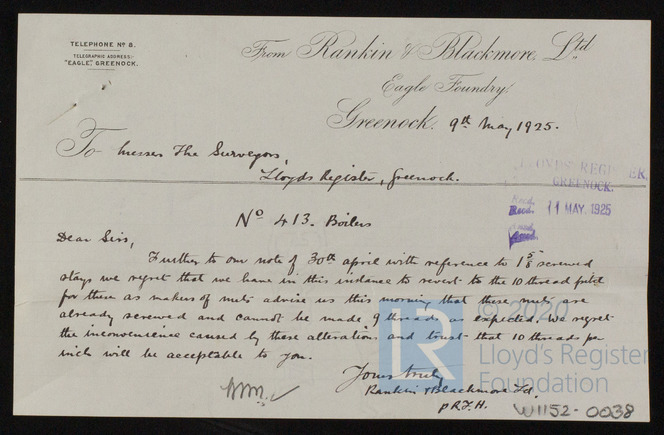 TELEPHONE Nº 8.
TELEGRAPHIC ADDRESS:-
"EAGLE," GREENOCK.
From Rankin & Blackmore, Ltd
Eagle Foundry,
Greenock, 9th May 1925.
To Messrs The Surveyors,
Lloyds Register, Greenock.
LLOYDS REGISTER,
GREENOCK.
Recd. 11 MAY. 1925
Nº 413. Boilers
Dear Sirs,
Further to our note of 30th april with reference to 1 5/8 screwed
stays we regret that we have in this instance to revert to the 10 thread pitch
for these as makers of nuts advise us this morning that these nuts are
already screwed and cannot be made 9 threads as expected. We regret
the inconvenience caused by these alterations and trust that 10 threads per
inch will be acceptable to you.
Yours truly
Rankin & Blackmore Ld.
p R.F.H.
W1152-0038
© 2020
LR
Lloyd's Register
Foundation